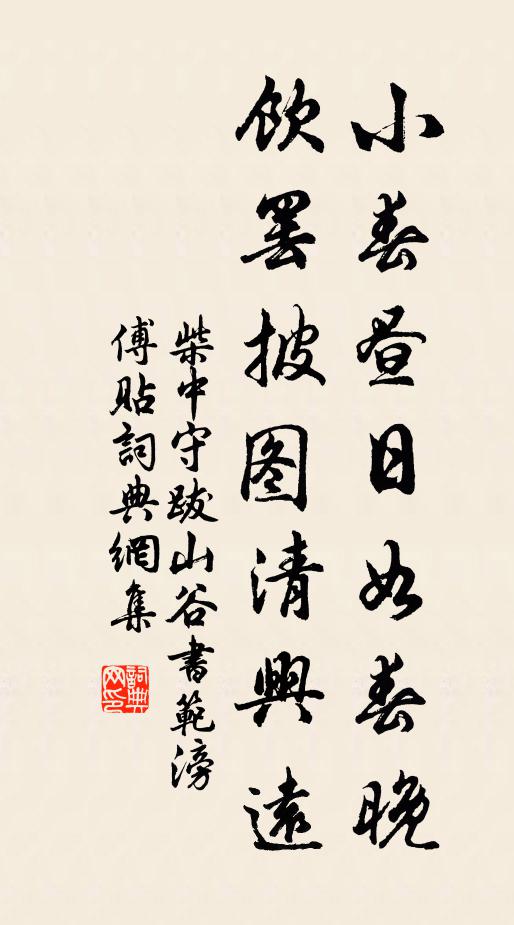 小春昼日如春晚
飲罢披图清興遠
柴中守跋山谷書範滂
傅贴詞典網集
詞典网印